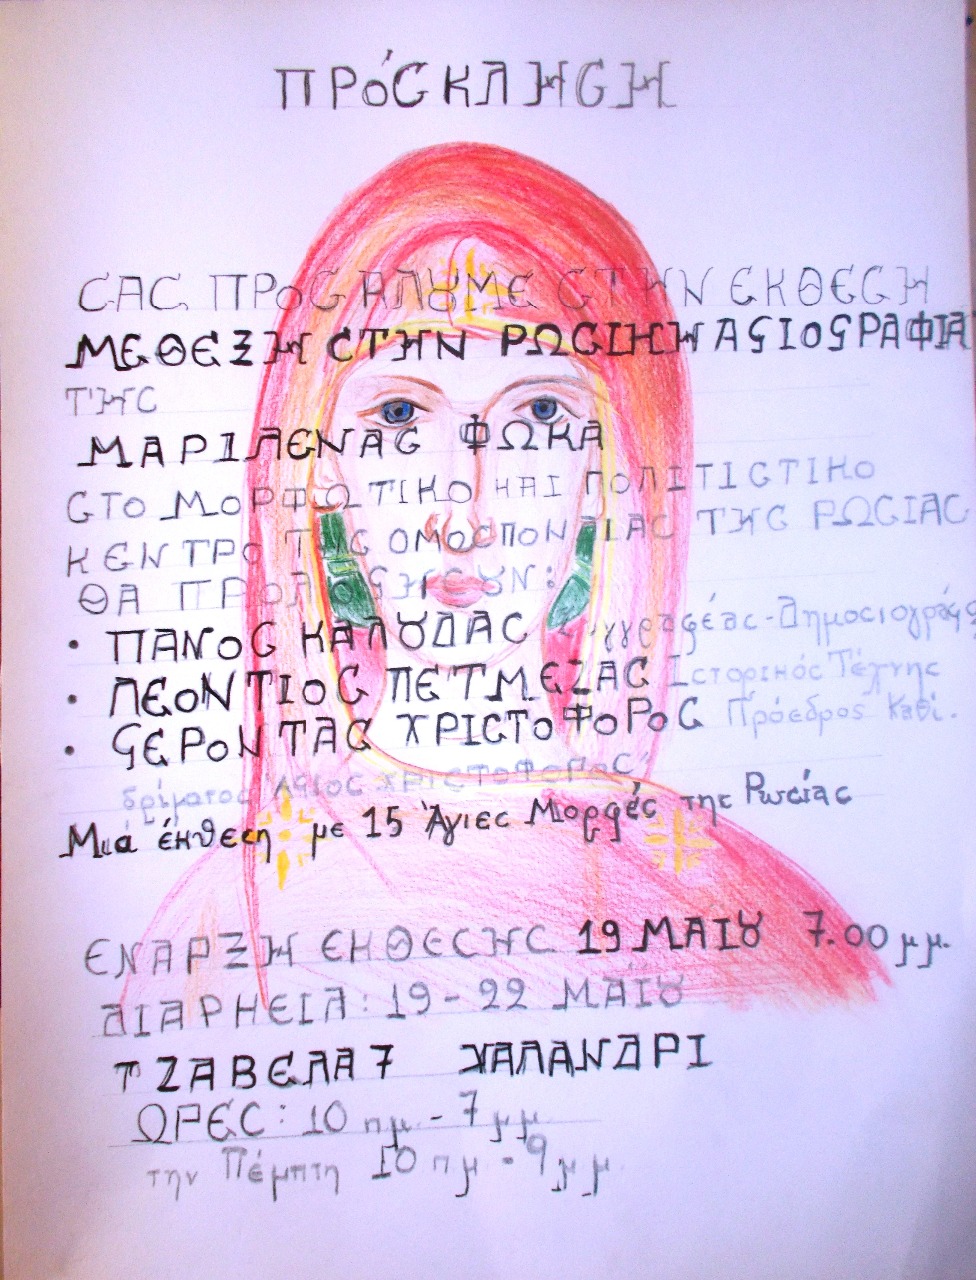 ΠΡΌΣΚΛΗΣΗ
ΣΑΣ ΠΡΟΣΚΑΛΟΥΜΕ ΣΤΗΝ ΕΚΘΕΣΗ
ΜΕΘΕΞΗ ΣΤΗΝ ΡΩΣΙΚΗ ΑΓΙΟΓΡΑΦΙΑ
ΤΗΣ
ΜΑΡΙΛΕΝΑΣ ΦΩΚΑ
ΣΤΟ ΜΟΡΦΩΤΙΚΟ ΚΑΙ ΠΟΛΙΤΙΣΤΙΚΟ
ΚΕΝΤΡΟ ΤΗΣ ΟΜΟΣΠΟΝΔΙΑΣ ΤΗΣ ΡΩΣΙΑΣ
ΘΑ ΠΡΟΛΟΓΗΣΟΥΝ:
• ΠΑΝΟΣ ΚΑΛΟΥΔΑΣ Συγγραφέας-Δημοσιογράφος
• ΛΕΟΝΤΙΟΣ ΠΕΤΜΕΖΑΣ Ιστορικός Τέχνης
• ΓΕΡΟΝΤΑΣ ΧΡΙΣΤΟΦΟΡΟΣ Πρόεδρος Καθι.
δρύματος ΑΓΙΟΣ ΧΡΙΣΤΟΦΟΡΟΣ
Μια έκθεση με 15 Άγιες Μορφές της Ρωσίας
ΕΝΑΡΞΗ ΕΚΘΕΣΗΣ 19 ΜΑΙΟΥ 7.00 μμ.
ΔΙΑΡΚΕΙΑ: 19-22 ΜΑΪΟΥ
ΤΖΑΒΕΛΑ 7 ΧΑΛΑΝΔΡΙ
ΩΡΕΣ: 10 πμ - 7 μμ.
την Πέμπτη 10 πμ - 9 μμ.